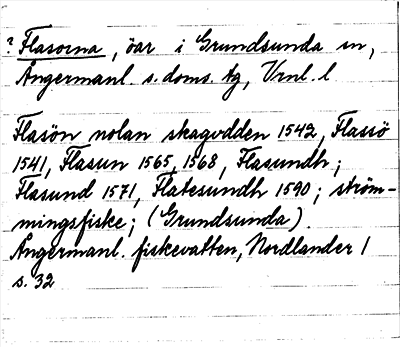 ? Flasorna, öar i Grundsunda sn,
Ångermanl. s. doms. tg, Vrnl. l
Flasön nolan skagvdden 1542, Flassö
1541, Flasun 1565, 1568, Flasundh;
Flasund 1571, Flatesundh 1590; ström-
mingsfiske; (Grundsunda).
Ångermanl. fiskevatten, Nordlander 1
s. 32